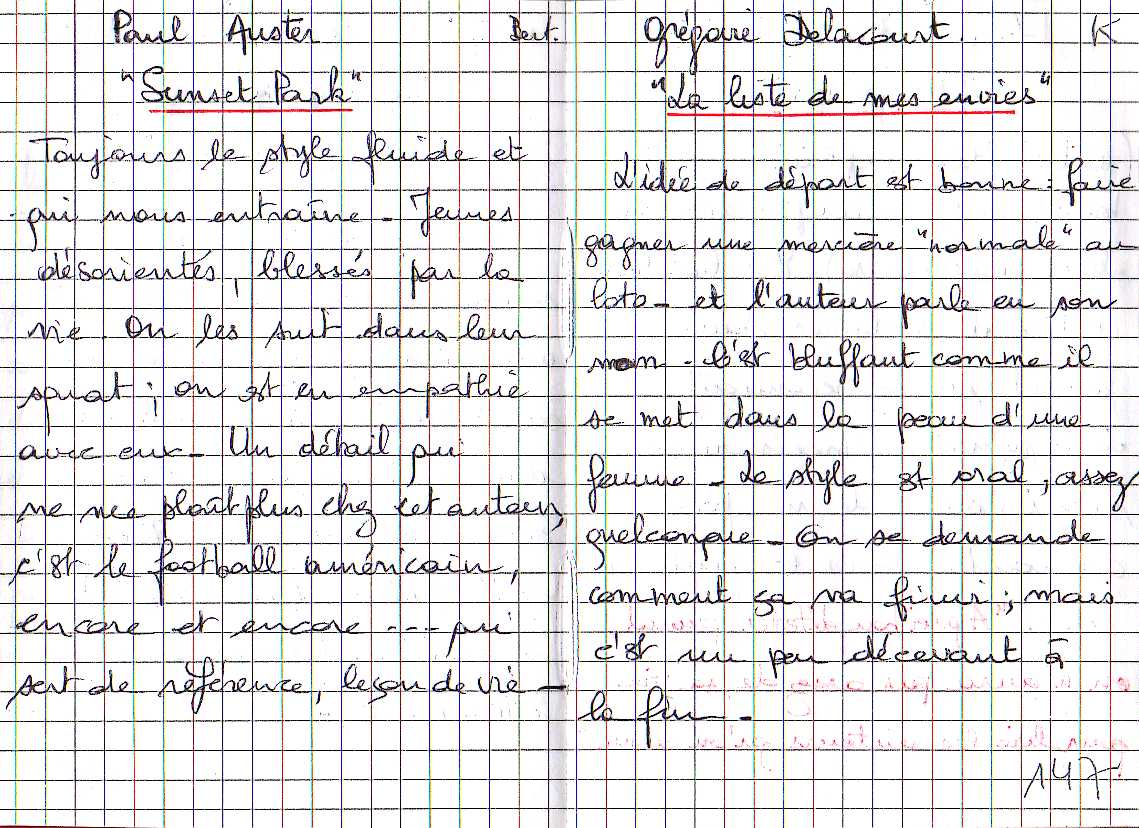 Paul Auster Bert.
"Sunset Park"
Toujours le style fluide et
qui nous entraîne - Jeunes
désorientés, blessés par la
vie. On les suit dans leur
squat ; on est en empathie
avec eux - Un détail qui
ne me plaît plus chez cet auteur,
c'est le football américain,
encore et encore --- qui
sert de référence, leçon de vie -
Grégoire Delacourt K
"La liste de mes envies"
L'idée de départ est bonne : faire
gagner une mercière "normale" au
loto - et l'auteur parle en son
nom - C'est bluffant comme il
se met dans la peau d'une
femme - Le style est oral, assez
quelconque - On se demande
comment ça va finir ; mais
c'est un peu décevant à
la fin -
147